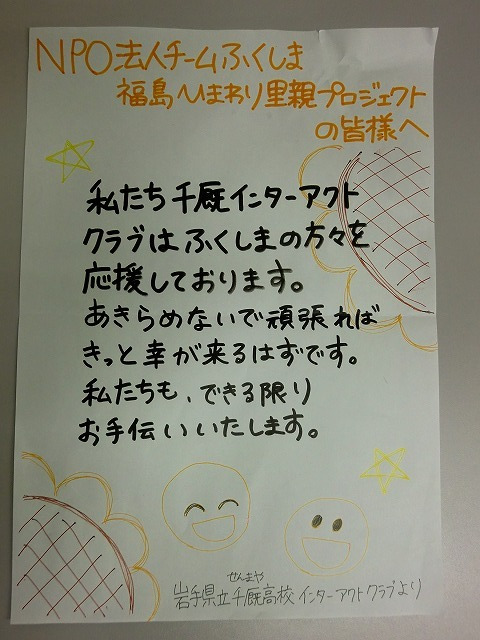 NPO法人チームふくしま
福島ひまわり里親プロジェクト
の皆様へ
私たち千厩インターアクト
クラブはふくしまの方々を
応援しております。
あきらめないで頑張れば
きっと幸が来るはずです。
私たちも、できる限り
お手伝いいたします。
せんまや
岩手県立千厩高校インターアクトクラブより